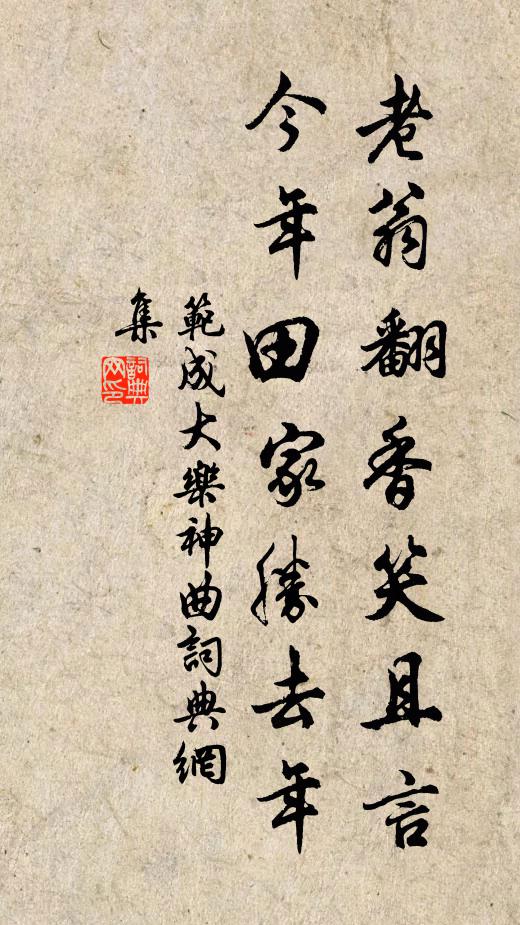 老翁翻香笑且言
今年田家勝去年
範成大樂神曲詞典網
集
詞典
网印